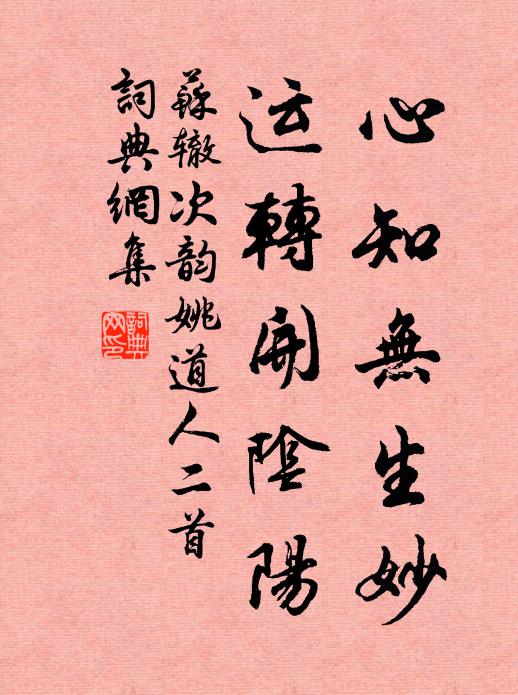 心知無生妙
运轉開陰陽
蘇辙次韵姚道人二首
詞典網集
詞典網印